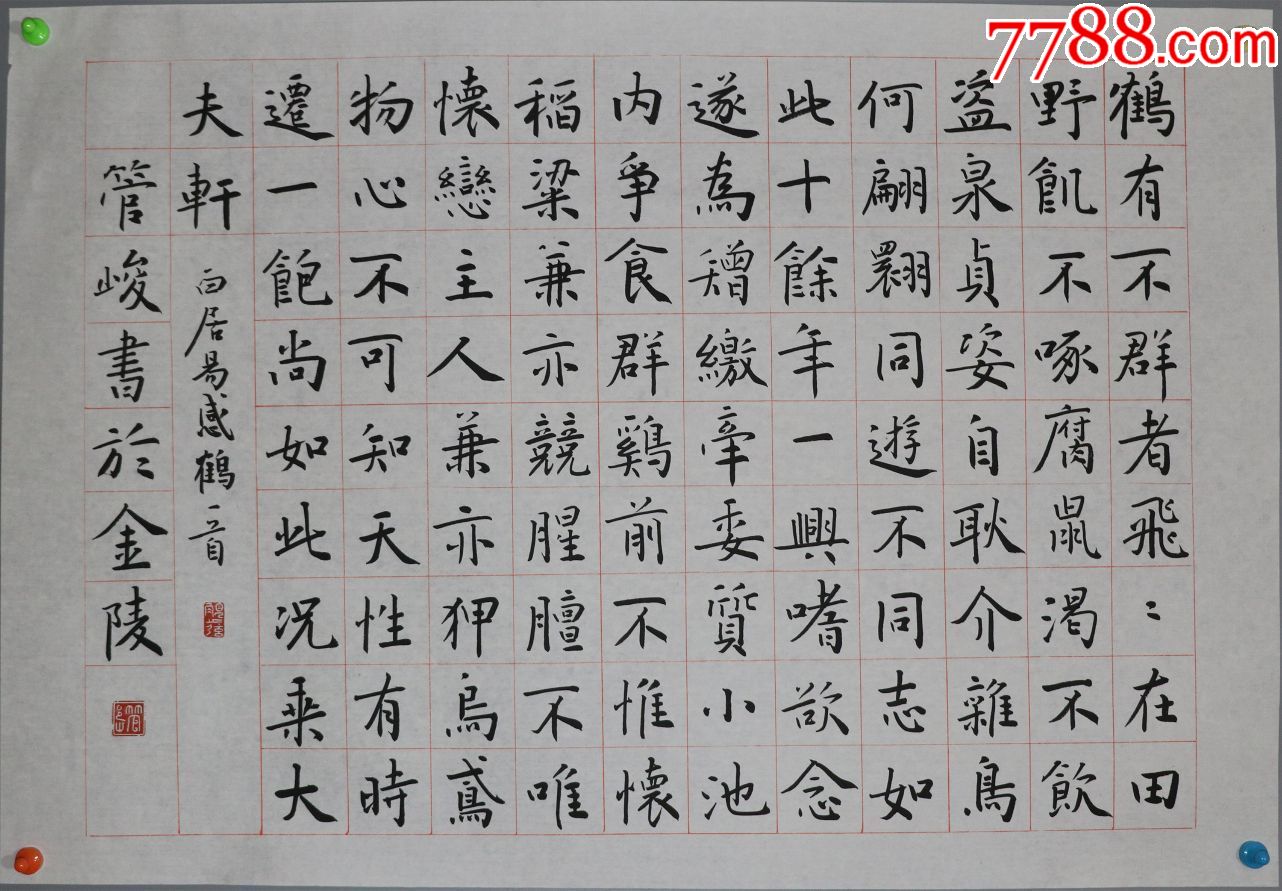 7788.com
鶴有不群者飛〻在田
野飢不啄腐鼠渴不飲
盗泉貞姿自耿介雜鳥
何翩翾同遊不同志如
此十餘年一興嗜欲念
遂為矰繳牽委質小池
内爭食群鷄前不惟懷
稻粱兼亦競腥膻不唯
懷戀主人兼亦狎烏鳶
物心不可知天性有時
遷一飽尚如此況乘大
夫軒 白居易感鶴一首
管峻書於金陵